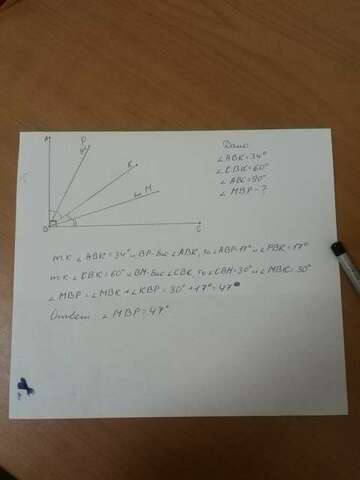 A
P
K
M
B
C
Дано
∠ABK=34°
∠CBK=60°
∠ABC=90°
∠MBP-?
т.к. ∠ABK=34° и BP-бис ∠ABK, то ∠ABP=17° и ∠PBK=17°
т.к. ∠CBK=60° и BM-бис ∠CBK, то ∠CBM=30° и ∠MBK=30°
∠MBP=∠MBK+∠KBP=30°+17°=47°
Ответ ∠MBP=47°